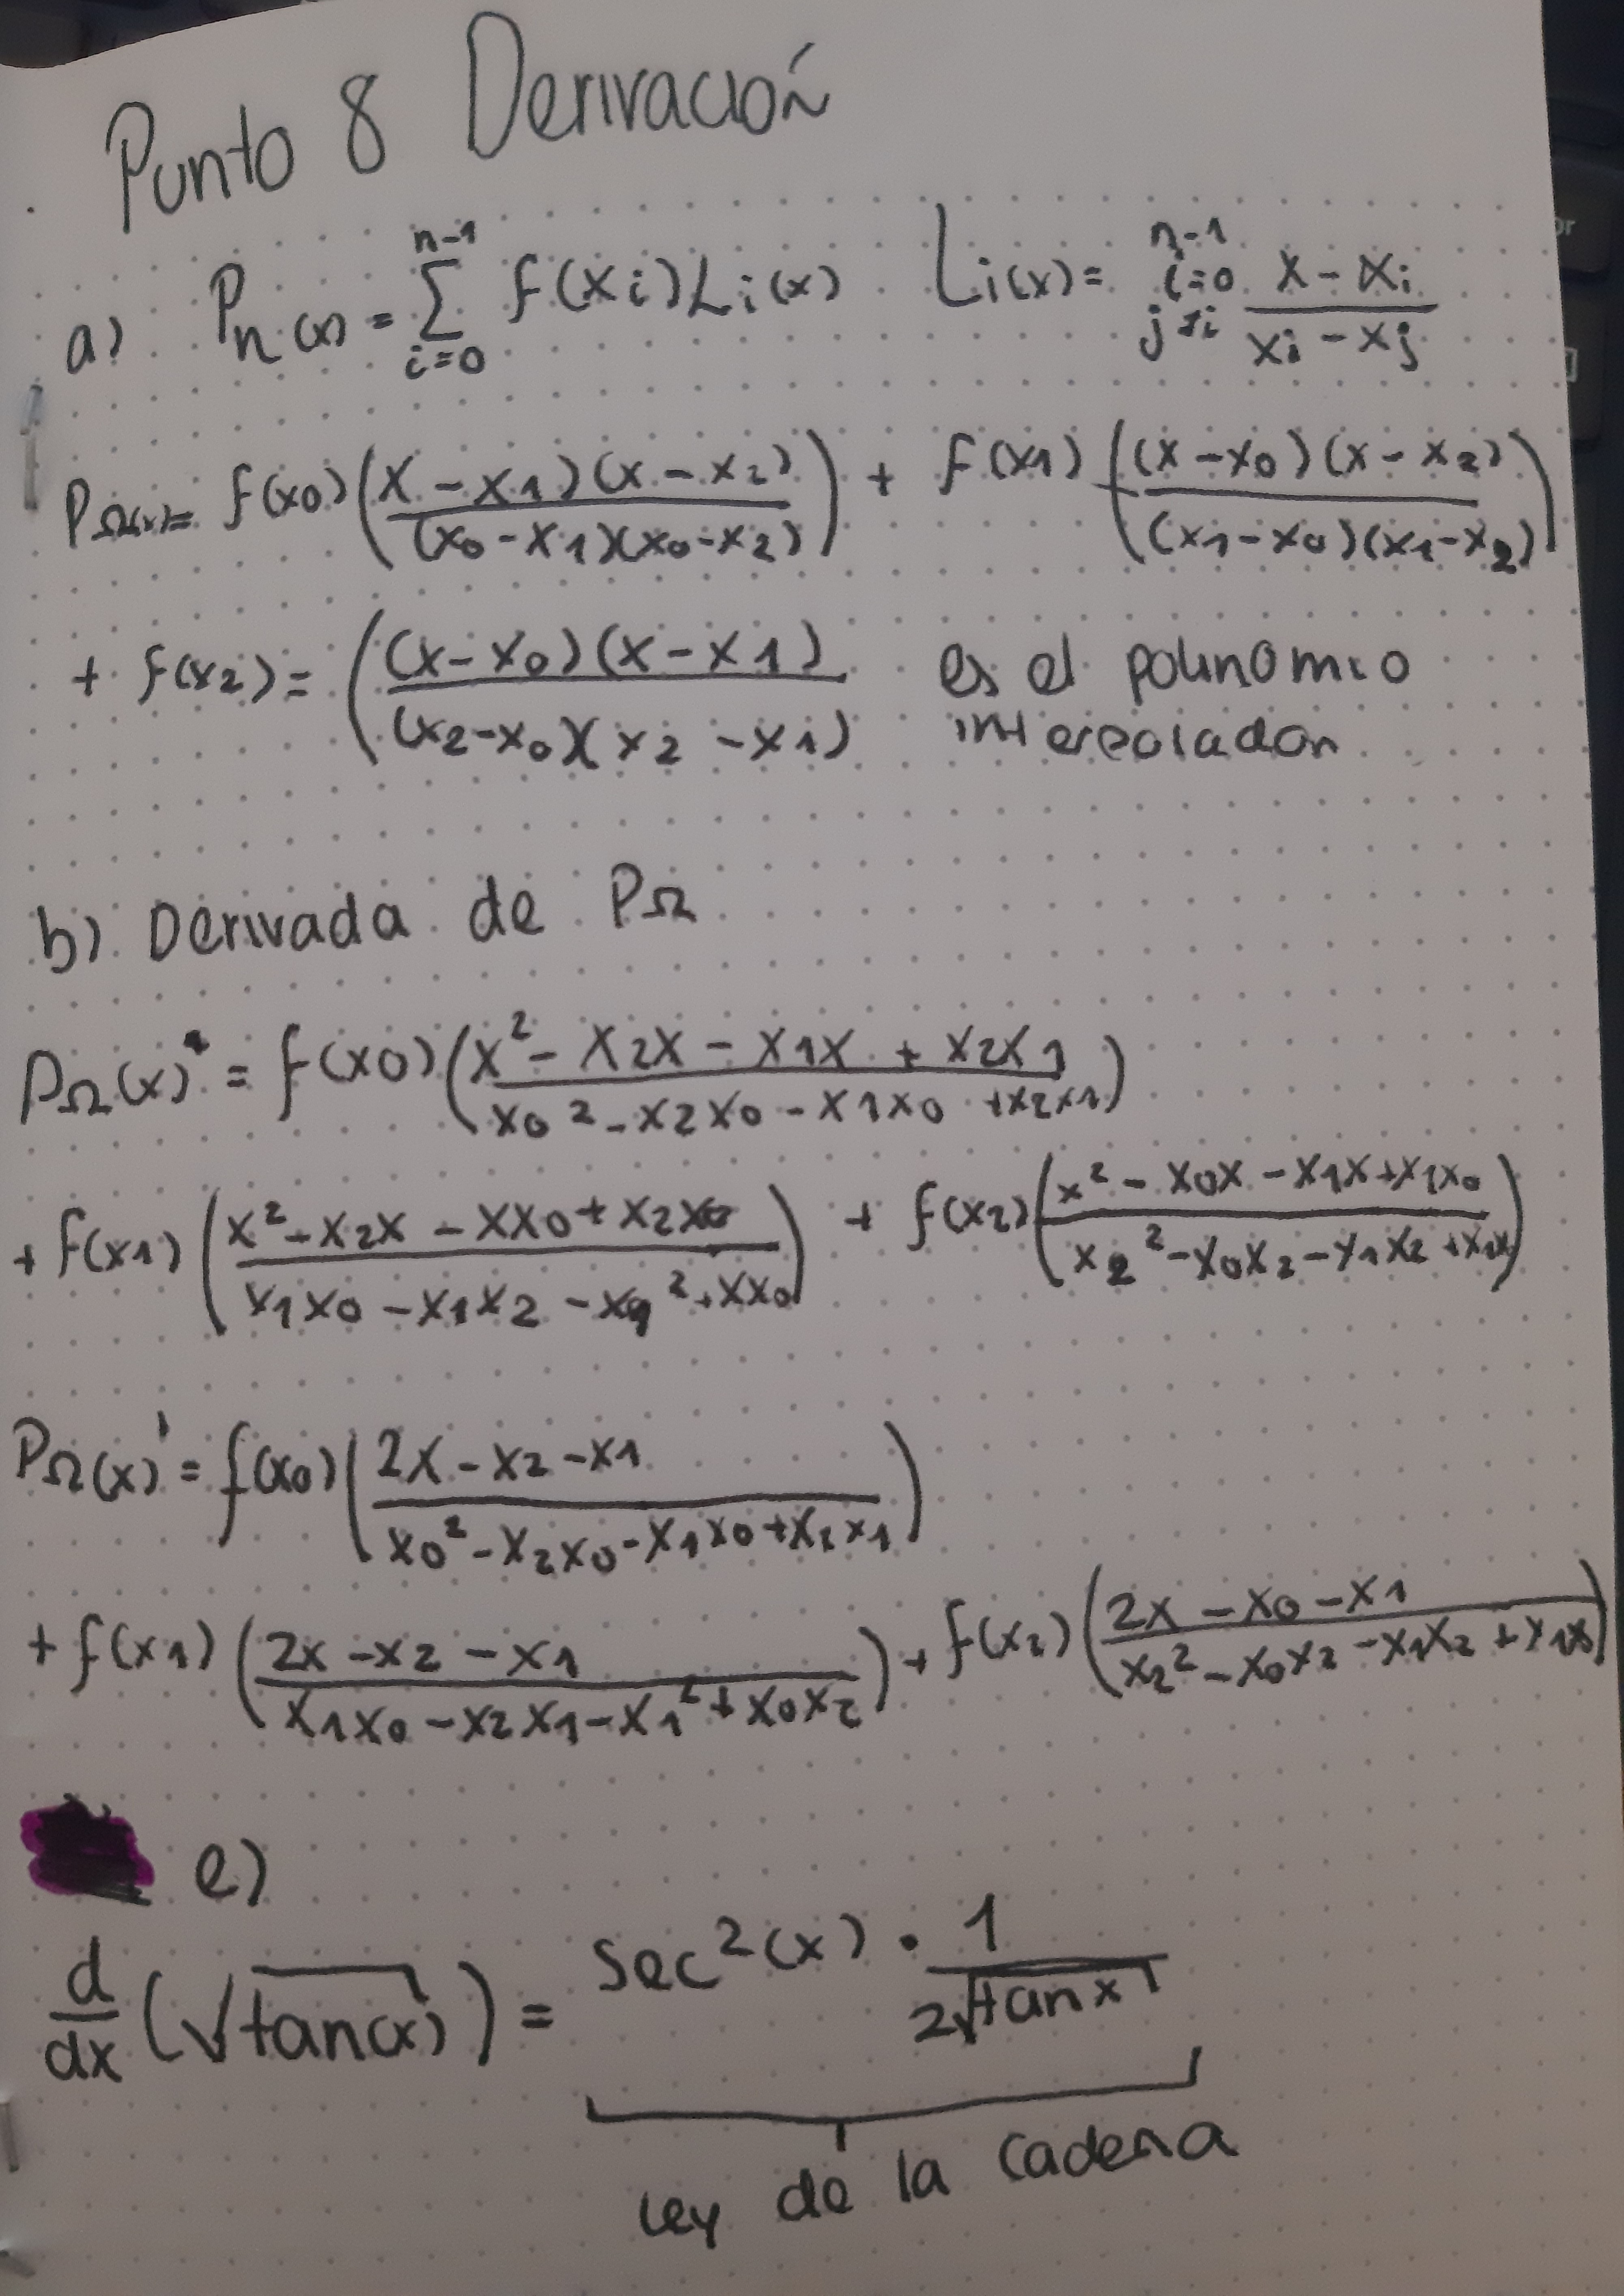 Punto 8 Derivación
a) Pn(x) = n-1 Σ i=0 f(xi)Li(x) Li(x) = n-1 i=0 j≠i (x - xi)/(xi - xj)
PΩ(x)= f(x0)((x - x1)(x - x2)/(x0 - x1)(x0 - x2)) + f(x1)((x - x0)(x - x2)/(x1 - x0)(x1 - x2))
+ f(x2) = ((x - x0)(x - x1)/(x2 - x0)(x2 - x1)) es el polinomio
interpolador
b) Derivada de PΩ
PΩ(x) = f(x0)(x² - x2x - x1x + x2x1/x0² - x2x0 - x1x0 + x2x1)
+ f(x1)(x² - x2x - xx0 + x2x0/x1x0 - x1x2 - x1² + xx0) + f(x2)(x² - x0x - x1x + x1x0/x2² - x0x2 - x1x2 + x1x)
PΩ(x)' = f(x0)(2x - x2 - x1/x0² - x2x0 - x1x0 + x2x1)
+ f(x1)(2x - x2 - x1/x1x0 - x2x1 - x1² + x0x2) + f(x2)(2x - x0 - x1/x2² - x0x2 - x1x2 + x1x0)
e)
d/dx (√tan(x)) = sec²(x) · 1/2√tan x
ley de la cadena